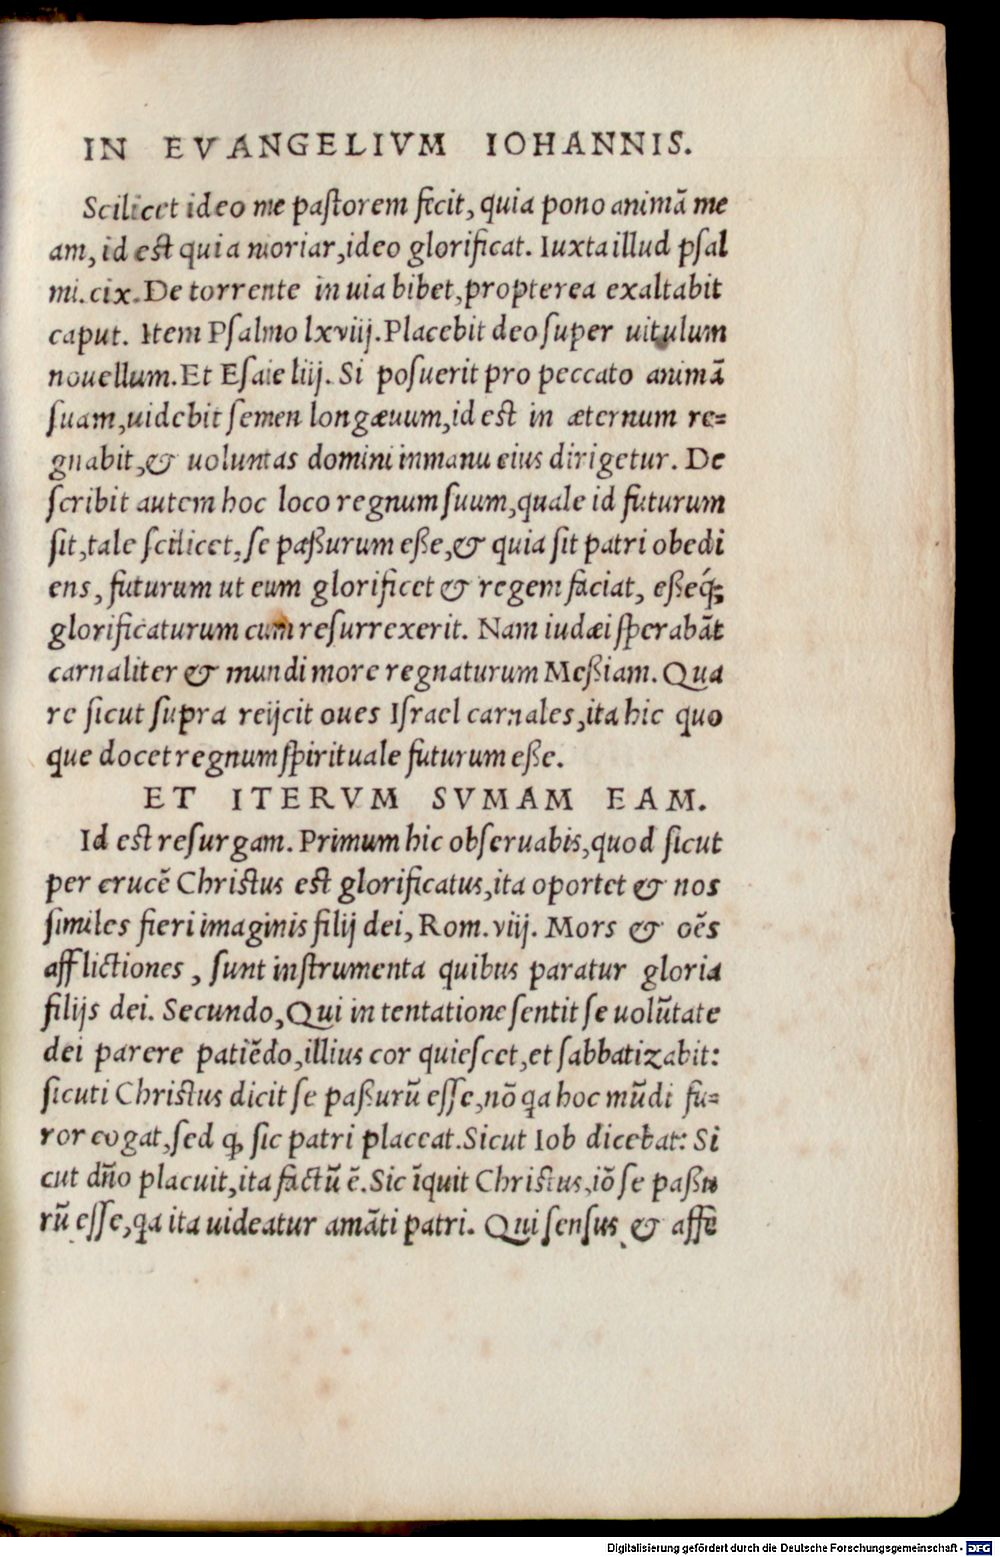 IN EVANGELIVM IOHANNIS.
Scilicet ideo me paſtorem fecit, quia pono animā me
am, id eſt quia moriar, ideo glorificat. Iuxta illud pſal
mi. cix. De torrente in uia bibet, propterea exaltabit
caput. Item Pſalmo lxviij. Placebit deo ſuper uitulum
nouellum. Et Eſaie liij. Si poſuerit pro peccato animā
ſuam, uidebit ſemen longæuum, id eſt in æternum re=
gnabit, & uoluntas domini in manu eius dirigetur. De
ſcribit autem hoc loco regnum ſuum, quale id futurum
ſit, tale ſcilicet, ſe paßurum eße, & quia ſit patri obedi
ens, futurum ut eum glorificet & regem faciat, eßeq́;
glorificaturum cum reſurrexerit. Nam iudæi ſperabāt
carnaliter & mundi more regnaturum Meßiam. Qua
re ſicut ſupra reijcit oues Iſrael carnales, ita hic quo
que docet regnum ſpirituale futurum eße.
ET ITERVM SVMAM EAM.
Id eſt reſurgam. Primum hic obſeruabis, quod ſicut
per crucē Chriſtus eſt glorificatus, ita oportet & nos
ſimiles fieri imaginis filij dei, Rom. viij. Mors & oēs
afflictiones, ſunt inſtrumenta quibus paratur gloria
filijs dei. Secundo, Qui in tentatione ſentit ſe uolūtate
dei parere patiēdo, illius cor quieſcet, et ſabbatizabit:
ſicuti Chriſtus dicit ſe paßurū eſſe, nō qa hoc mūdi fu=
ror cogat, ſed ꝙ ſic patri placeat. Sicut Iob dicebat: Si
cut dño placuit, ita factū ē. Sic īquit Chriſtus, iō ſe paßu
rū eſſe, qa ita uideatur amāti patri. Qui ſenſus & affē
Digitalisierung gefördert durch die Deutsche Forschungsgemeinschaft - DFG